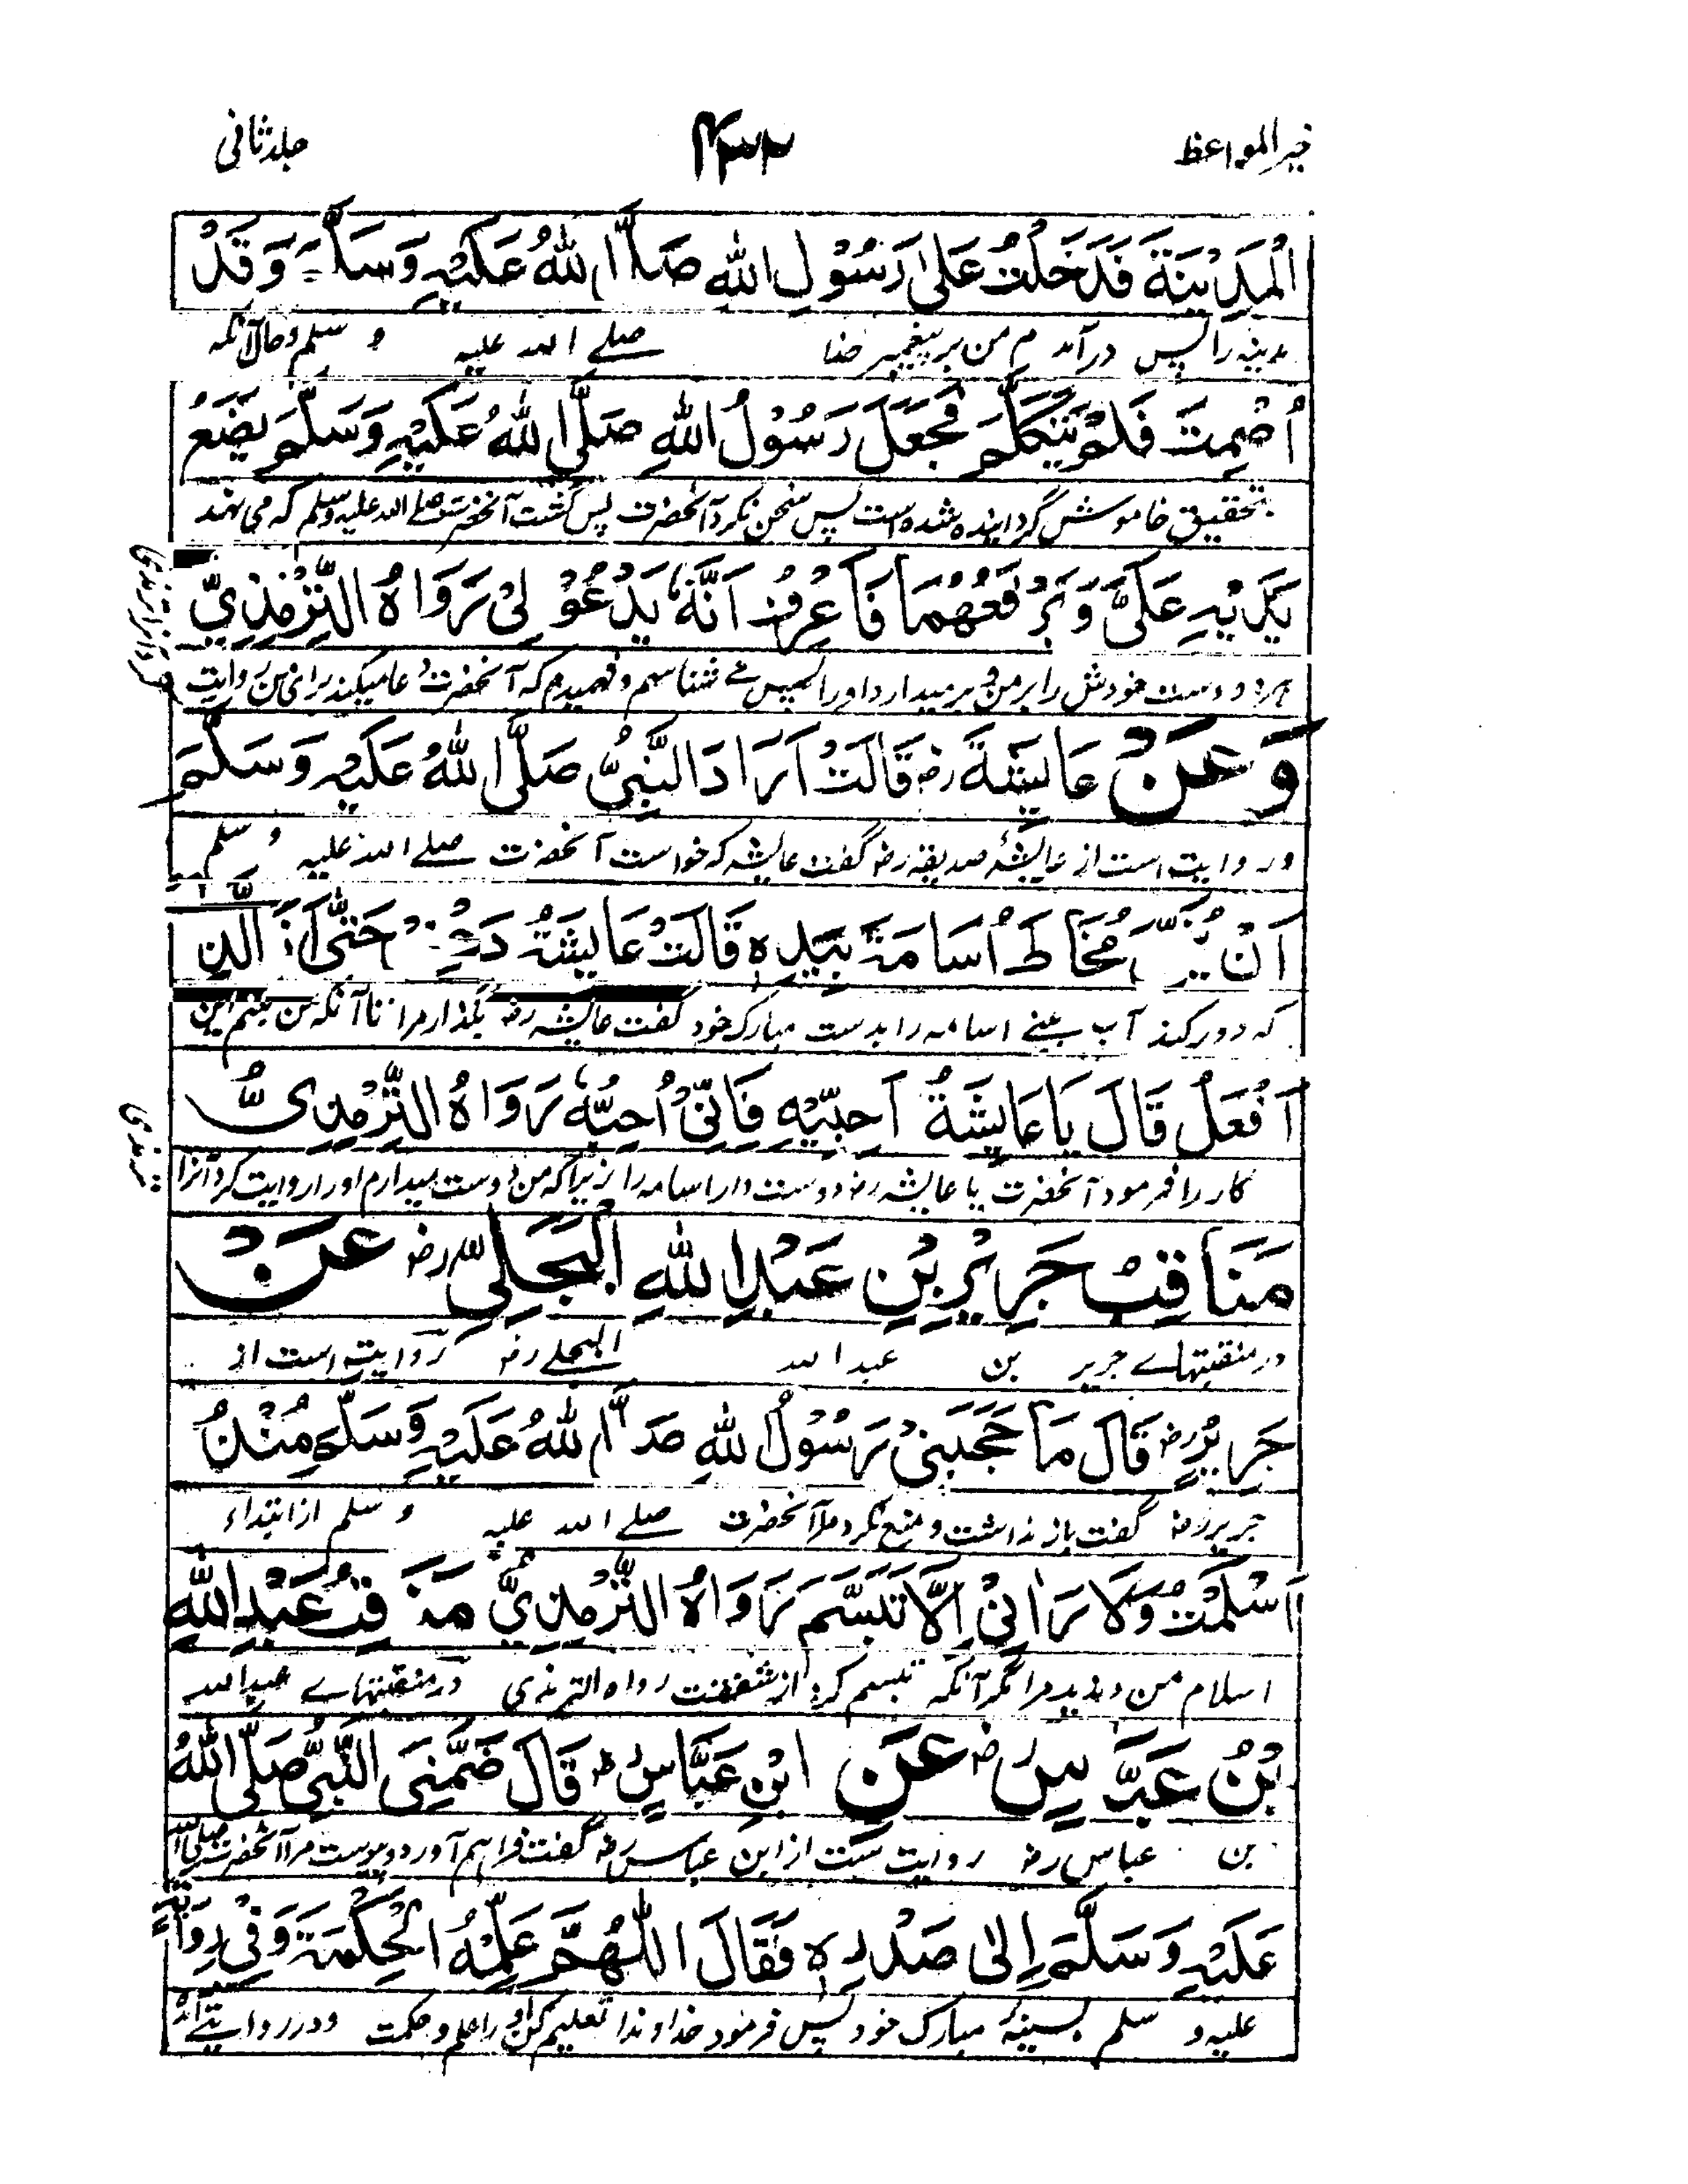 خیر المواعظ ۴۳۲ جلد ثانی
الْمَدِیْنَةَ فَدَخَلْتُ عَلیٰ رَسُوْلِ اللهِ صَلَّی اللهُ عَلَیْهِ وَسَلَّمَ وَقَدْ
مدینه را پس در آمدم من بر پیغمبر خدا صلے الله علیه و سلم و حال آنکه
اُصْمِتَ فَلَمْ یَتَکَلَّمْ فَجَعَلَ رَسُوْلُ اللهِ صَلَّی اللهُ عَلَیْهِ وَسَلَّمَ یَضَعُ
بتحقیق خاموش گردانیده شده است پس سخن نکرد آنحضرت پس گشت آنحضرت صلے الله علیه وسلم که می نهد
یَدَیْهِ عَلَیَّ وَیَرْفَعُهُمَا فَاَعْرِفُ اَنَّهٗ یَدْعُوْ لِیْ رَوَاهُ التِّرْمِذِیُّ
هر دو دست خودش را بر من و بر میدارد او را پس مے شناسم و فهمیدم که آنحضرت دعا میکند برای من روایت
کرد آنرا ترمذی
وَعَنْ عَایِشَةَ رض قَالَتْ اَرَادَ النَّبِیُّ صَلَّی اللهُ عَلَیْهِ وَسَلَّمَ
و روایت است از عایشهٔ صدیقه رض گفت عایشه که خواست آنحضرت صلے الله علیه و سلم
اَنْ مُخَاطَ اُسَامَةَ بِیَدِهٖ قَالَتْ عَایِشَةُ حَتّٰی
که دور کند آب بینے اسامه را بدست مبارک خود گفت عایشه رض بگذار مرا تا آنکه من بکنم این
اَفْعَلُ قَالَ یَا عَایِشَةُ اَحِبِّیْهِ فَاِنِّیْ اُحِبُّهٗ رَوَاهُ التِّرْمِذِیُّ
کار را فرمود آنحضرت یا عایشه رض دوست دار اسامه را زیرا که من دوست میدارم او را روایت کرد آنرا
ترمذی
مَنَاقِبُ جَرِیْرِ بْنِ عَبْدِ اللهِ الْبَجَلِی رض عَنْ
در منقبتهاے جریر بن عبد الله البجلے رض روایت است از
جَرِیْرٍ رض قَالَ مَا حَجَبَنِیْ رَسُوْلُ اللهِ صَلَّی اللهُ عَلَیْهِ وَسَلَّمَ مُنْذُ
جریر رض گفت باز نداشت و منع نکرد مرا آنحضرت صلے الله علیه و سلم از ابتداء
اَسْلَمْتُ وَلَا رَاٰنِیْ اِلَّا تَبَسَّمَ رَوَاهُ التِّرْمِذِیُّ مَنَاقِبُ عَبْدِ اللهِ
اسلام من و ندید مرا مگر آنکه تبسم کرد از شفقت رواه الترمذی در منقبتهاے عبد الله
بْنِ عَبَّاسٍ رض عَنِ ابْنِ عَبَّاسٍ رض قَالَ ضَمَّنِیَ النَّبِیُّ صَلَّی اللهُ
بن عباس رض روایت ست از ابن عباس رض گفت فراهم آورد و پیوست مرا آنحضرت صلی الله
عَلَیْهِ وَسَلَّمَ اِلیٰ صَدْرِهٖ فَقَالَ اللّٰهُمَّ عَلِّمْهُ الْحِکْمَةَ وَفِیْ رِوَایَةٍ
علیه و سلم بسینهٔ مبارک خود پس فرمود خداوندا تعلیم کن او را علم و حکمت و در روایتے